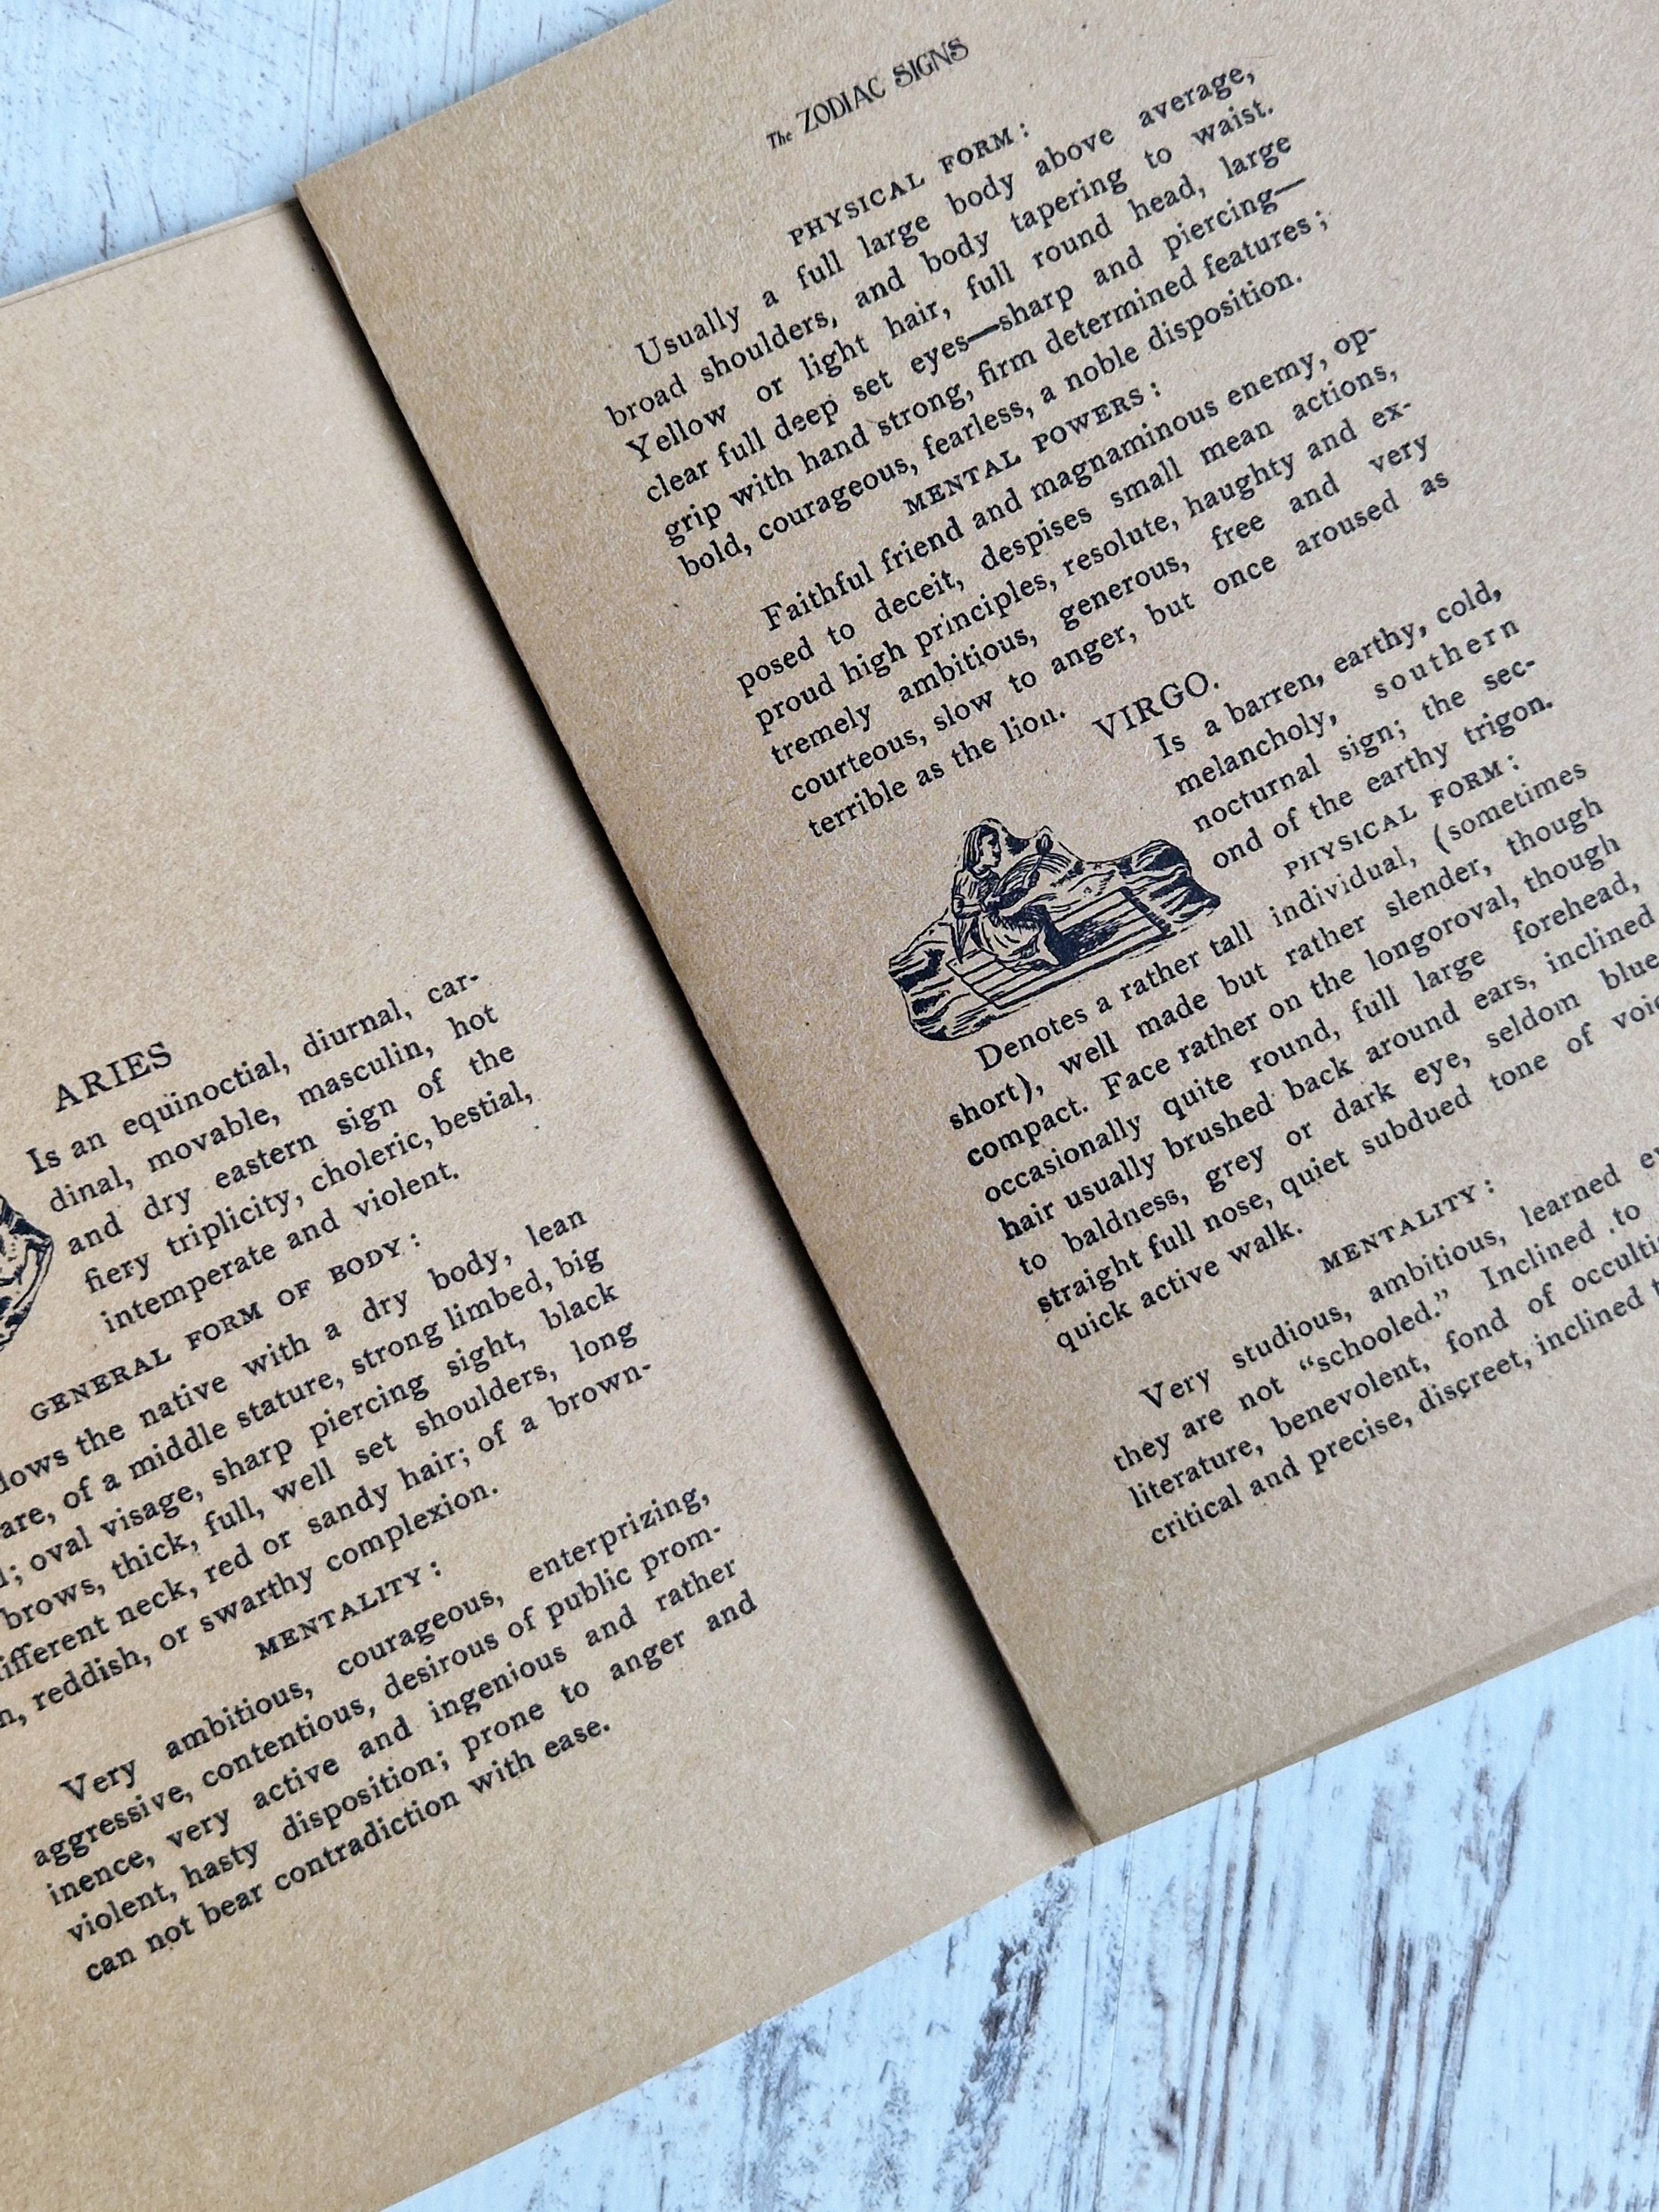 ARIES
Is an equinoctial, diurnal, car-
dinal, movable, masculin, hot
and dry eastern sign of the
fiery triplicity, choleric, bestial,
intemperate and violent.
GENERAL FORM OF BODY:
the native with a dry body, lean
of a middle stature, strong limbed, big
oval visage, sharp piercing sight, black
brows, thick, full, well set shoulders, long
neck, red or sandy hair; of a brown-
reddish, or swarthy complexion.
MENTALITY:
Very ambitious, courageous, enterprizing,
aggressive, contentious, desirous of public prom-
inence, very active and ingenious and rather
violent, hasty disposition; prone to anger and
can not bear contradiction with ease.
The ZODIAC SIGNS
PHYSICAL FORM:
Usually a full large body above average,
broad shoulders, and body tapering to waist.
Yellow or light hair, full round head, large
clear full deep set eyes—sharp and piercing—
grip with hand strong, firm determined features;
bold, courageous, fearless, a noble disposition.
MENTAL POWERS:
Faithful friend and magnaminous enemy, op-
posed to deceit, despises small mean actions,
proud high principles, resolute, haughty and ex-
tremely ambitious, generous, free and very
courteous, slow to anger, but once aroused as
terrible as the lion.
VIRGO.
Is a barren, earthy, cold,
melancholy, southern
nocturnal sign; the sec-
ond of the earthy trigon.
PHYSICAL FORM:
Denotes a rather tall individual, (sometimes
short), well made but rather slender, though
compact. Face rather on the longoroval, though
occasionally quite round, full large forehead,
hair usually brushed back around ears, inclined
to baldness, grey or dark eye, seldom blue
straight full nose, quiet subdued tone of
quick active walk.
MENTALITY:
Very studious, ambitious, learned
they are not “schooled.” Inclined to
literature, benevolent, fond of
critical and precise, discreet, inclined